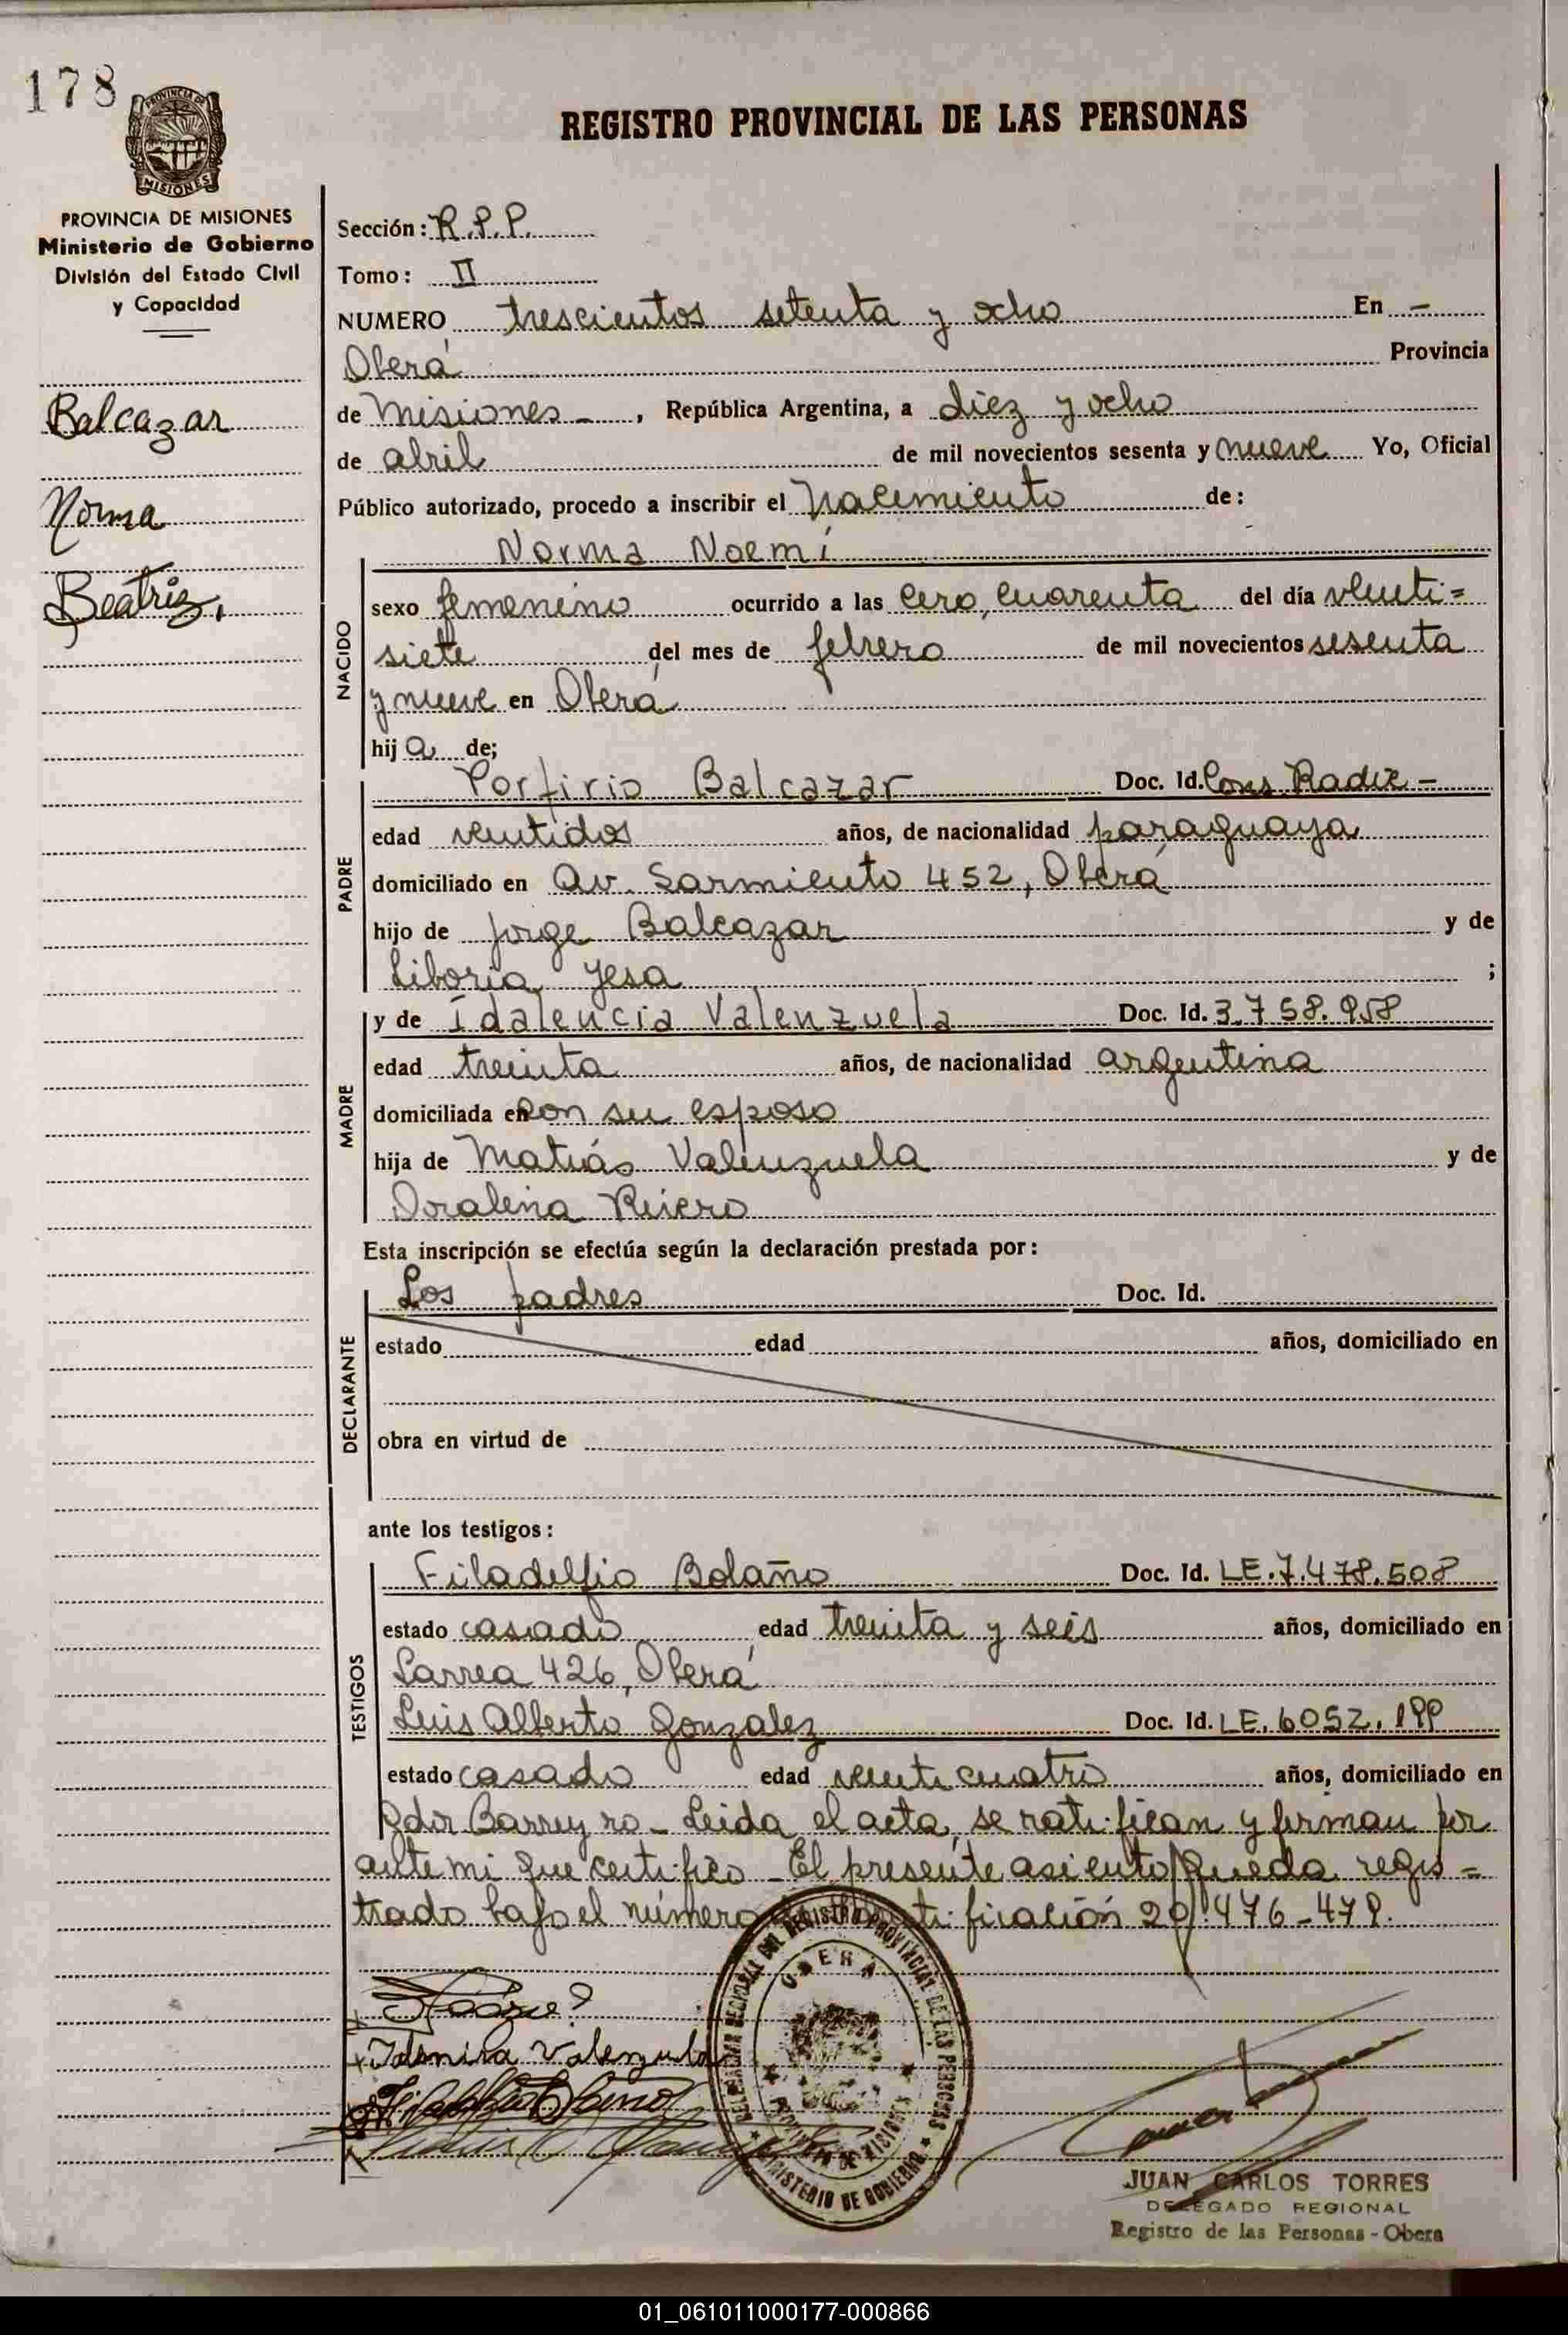 178
PROVINCIA DE
MISIONES
REGISTRO PROVINCIAL DE LAS PERSONAS
PROVINCIA DE MISIONES
Ministerio de Gobierno
División del Estado Civil
y Capacidad
Balcazar
Norma
Beatriz,
Sección: R.P.P.
Tomo: II
NUMERO trescientos setenta y ocho En -
Oberá Provincia
de Misiones -, República Argentina, a diez y ocho
de abril de mil novecientos sesenta y nueve Yo, Oficial
Público autorizado, procedo a inscribir el Nacimiento de:
Norma Noemí
NACIDO
sexo femenino ocurrido a las cero, cuarenta del día veinti=
siete del mes de febrero de mil novecientos sesenta
y nueve en Oberá
hija de;
PADRE
Porfirio Balcazar Doc. Id. Cons. Radic -
edad ventidos años, de nacionalidad paraguaya
domiciliado en Av. Sarmiento 452, Oberá
hijo de Jorge Balcazar y de
Liboria Jesa ;
MADRE
y de Idalencia Valenzuela Doc. Id. 3.758.958
edad treinta años, de nacionalidad argentina
domiciliada en con su esposo
hija de Matías Valenzuela y de
Doralina
Esta inscripción se efectúa según la declaración prestada por:
DECLARANTE
Los padres Doc. Id.
estado edad años, domiciliado en
obra en virtud de
ante los testigos:
TESTIGOS
Filadelfio Bolaño Doc. Id. LE.7.478.508
estado casado edad treinta y seis años, domiciliado en
Larrea 426, Oberá
Luis Alberto Gonzalez Doc. Id. LE. 6052.199
estado casado edad veinti cuatro años, domiciliado en
Gdor Barreyro - Leida el acta, se ratifican y firman por
ante mi que certifico - El presente asiento queda regis=
trado bajo el número ficación 20.476-479.
Valenzuela
DEL REGISTRO PROVINCIAL DE LAS PERSONAS
OBERA
PROVINCIA DE MISIONES
MINISTERIO DE GOBIERNO
JUAN CARLOS TORRES
DELEGADO REGIONAL
Registro de las Personas - Obera
01_061011000177-000866